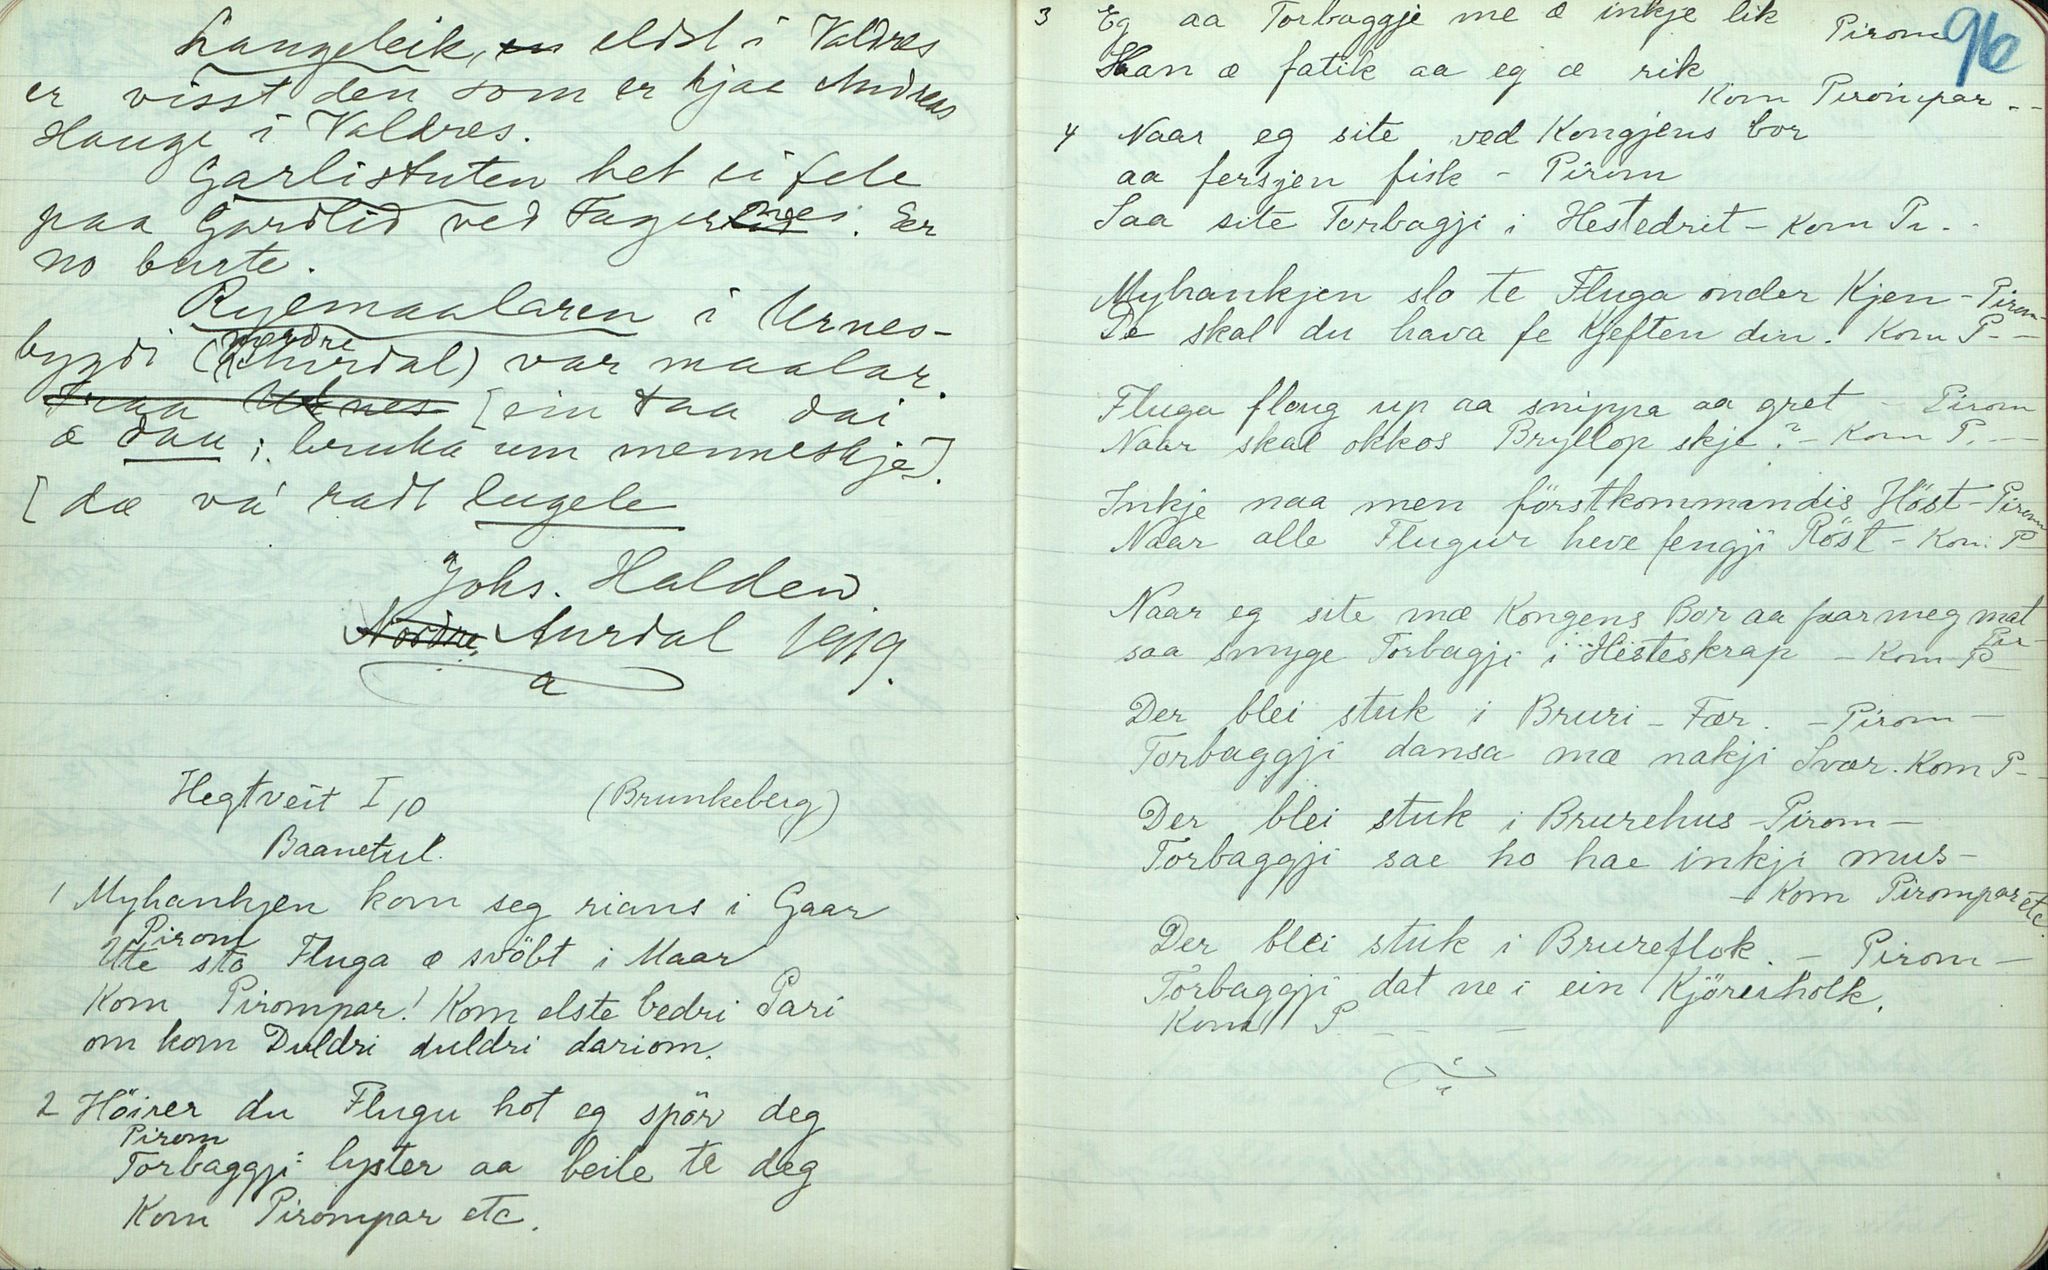 Langeleik, en eldst i Valdres
er visst den som er hjaa Andreas
Hauge i Valdres.
Garlistuten het ei fele
paa Gardlid ved Fagernes. Er
no burte.
Ryemaalaren i Urnes-
bygdi (nordre Aurdal) var maalar.
Fraa Urnes [ein taa dai
æ dau; bruka um menneskje].
[dæ va' radt lugele
Johs. Halden
Nordre Aurdal 19/19.
a
Hegtveit I, 10 (Brunkeberg)
Baanetul.
1 Myhankjen kom seg rians i Gaar
Pirom
Ute sto Fluga æ svöbt i Maar
Kom Pirompar! Kom elste bedri Pari
om kom Duldri duldri dariom.
2 Höirer du Flugu hot eg spör deg
Pirom
Torbaggji lyster aa beile te deg
Kom Pirompar etc.
96
3 Eg aa Torbaggje me æ inkje lik Pirom
Han æ fatik aa eg æ rik
Kom Pirompar --
4 Naar eg site ved Kongjens bor
aa fersjen fisk - Pirom
Saa site Torbagji i Hestedrit - Kom Pi--
Myhankjen slo te Fluga onder Kjen - Pirom-
De skal du hava fe Kjeften din. Kom P--
Fluga floug up aa snippa aa gret - Pirom
Naar skal okkos Bryllop skje? - Kom P.--
Inkje naa men förstkommandis Höst - Pirom
Naar alle Flugur heve fengji Röst - Kom P
Naar eg site mæ Kongens Bor aa faar meg mat
Pir-
saa smyge Torbagji i Hesteskrap - Kom P
Der blei stuk i Bruri-Fær. - Pirom -
Torbaggji dansa mæ nakji Svær. Kom P-
Der blei stuk i Brurehus - Pirom -
Torbaggji sae ho hae inkji mus-
- Kom Pirompar etc.
Der blei stuk i Brureflok. - Pirom -
Torbaggji dat ne i ein Kjörerholk.
Kom P - - -